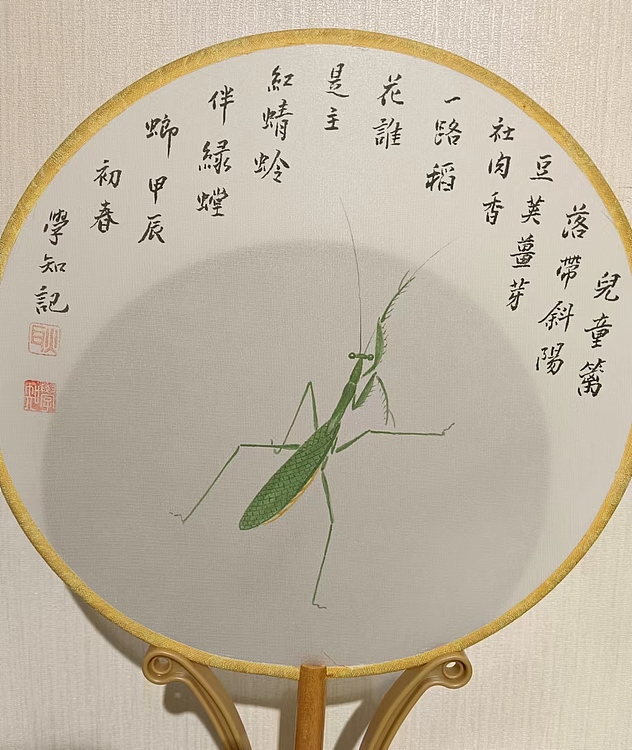 兒童篱
落帶斜陽
豆莢薑芽
社肉香
一路稻
花誰
是主
紅蜻蛉
伴綠螳
螂甲辰
初春
學知記
學知